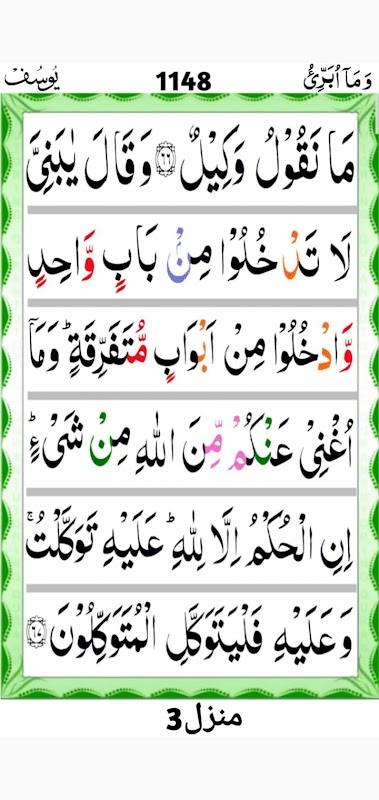 وَمَاۤ اُبَرِّئُ 1148 يُوسُف
مَا نَقُوْلُ وَكِيْلٌ ﴿۶۶﴾ وَقَالَ يٰبَنِىَّ
لَا تَدْخُلُوْا مِنْۢ بَابٍ وَّاحِدٍ
وَّادْخُلُوْا مِنْ اَبْوَابٍ مُّتَفَرِّقَةٍ ؕ وَمَاۤ
اُغْنِىْ عَنْكُمْ مِّنَ اللّٰهِ مِنْ شَىْءٍ ؕ
اِنِ الْحُكْمُ اِلَّا لِلّٰهِ ؕ عَلَيْهِ تَوَكَّلْتُ ۚ
وَعَلَيْهِ فَلْيَتَوَكَّلِ الْمُتَوَكِّلُوْنَ ﴿۶۷﴾
منزل3